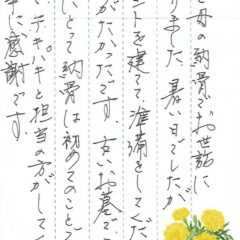 と母の納骨でお世話に
りました。暑い日でしたが
ントを建てて、準備をしてくだ
がたかったです。古いお墓で、
にとって納骨は初めてのことで
テキパキと担当の方がして
に感謝です。